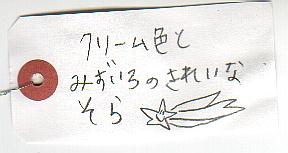 クリーム色と
みずいろのきれいな
そら